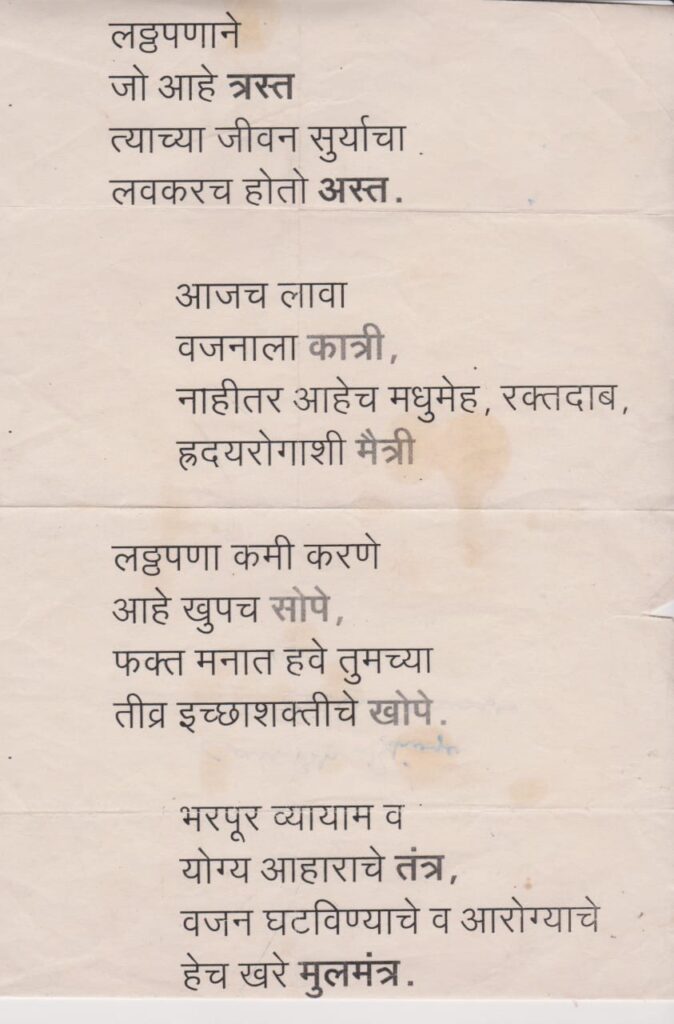 लठ्ठपणाने
जो आहे त्रस्त
त्याच्या जीवन सुर्याचा
लवकरच होतो अस्त.
आजच लावा
वजनाला कात्री,
नाहीतर आहेच मधुमेह, रक्तदाब,
ह्रदयरोगाशी मैत्री
लठ्ठपणा कमी करणे
आहे खुपच सोपे,
फक्त मनात हवे तुमच्या
तीव्र इच्छाशक्तीचे खोपे.
भरपूर व्यायाम व
योग्य आहाराचे तंत्र,
वजन घटविण्याचे व आरोग्याचे
हेच खरे मुलमंत्र.